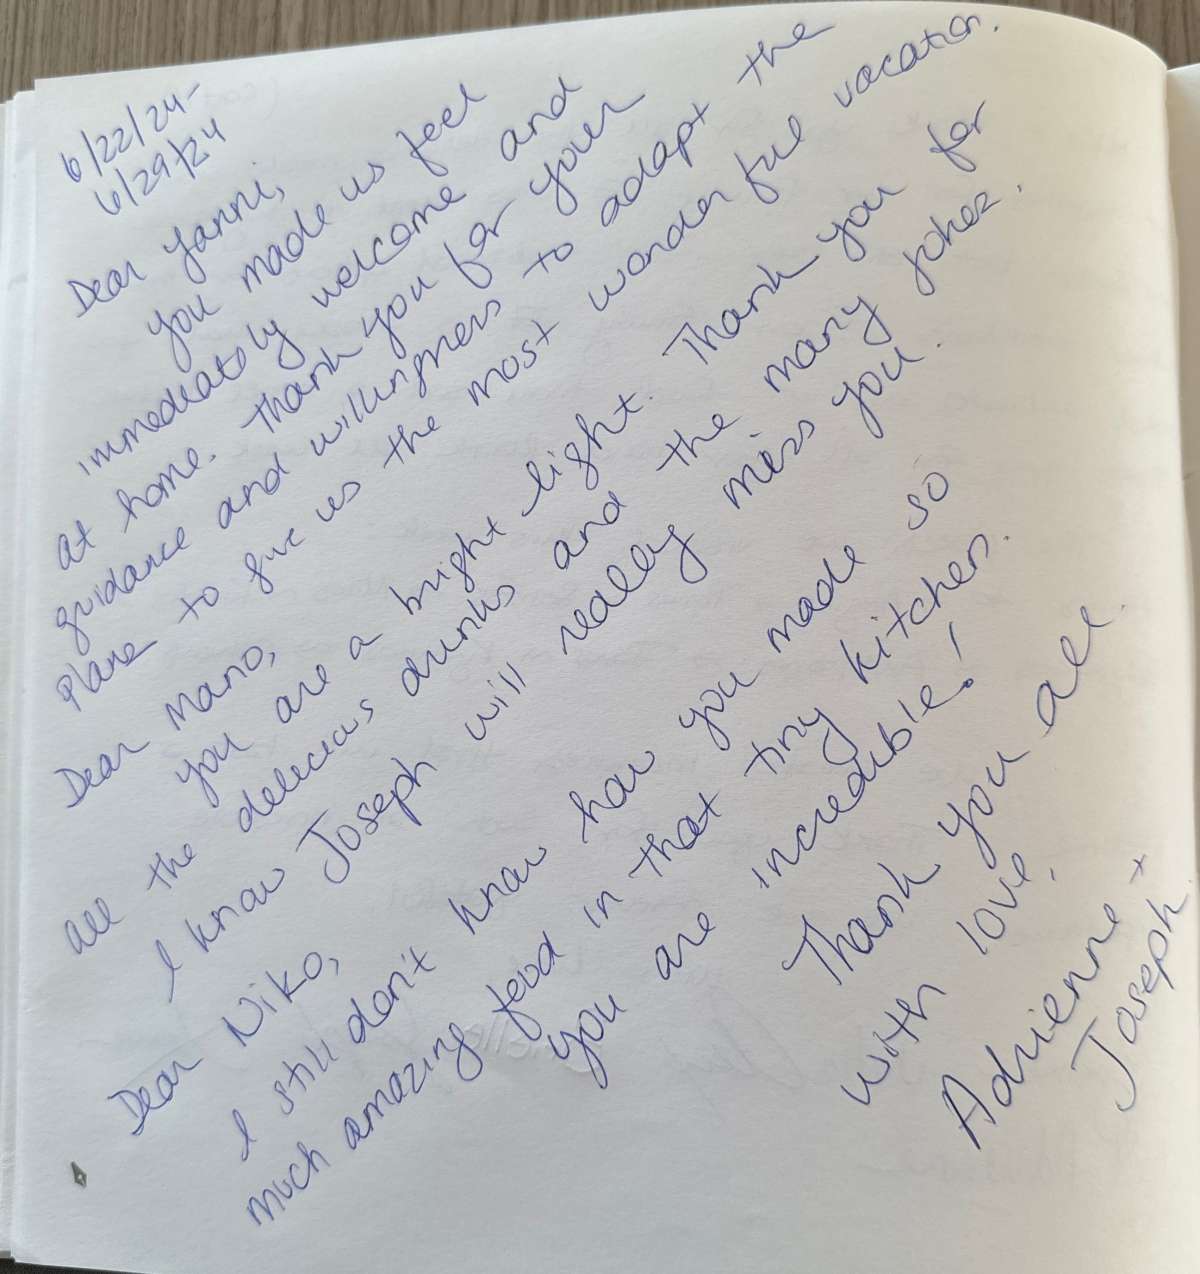 6/22/24-
6/29/24
Dear Yanni,
you made us feel
immediately welcome and
at home. Thank you for your
guidance and willingness to adapt the
plane to give us the most wonderful vacation.
Dear Mano,
you are a bright light. Thank you for
all the delecious drinks and the many jokes.
I know Joseph will really miss you.
Dear Niko,
I still don't know how you made so
much amazing food in that tiny kitchen.
you are incredible!
Thank you all.
with love,
Adrienne +
Joseph